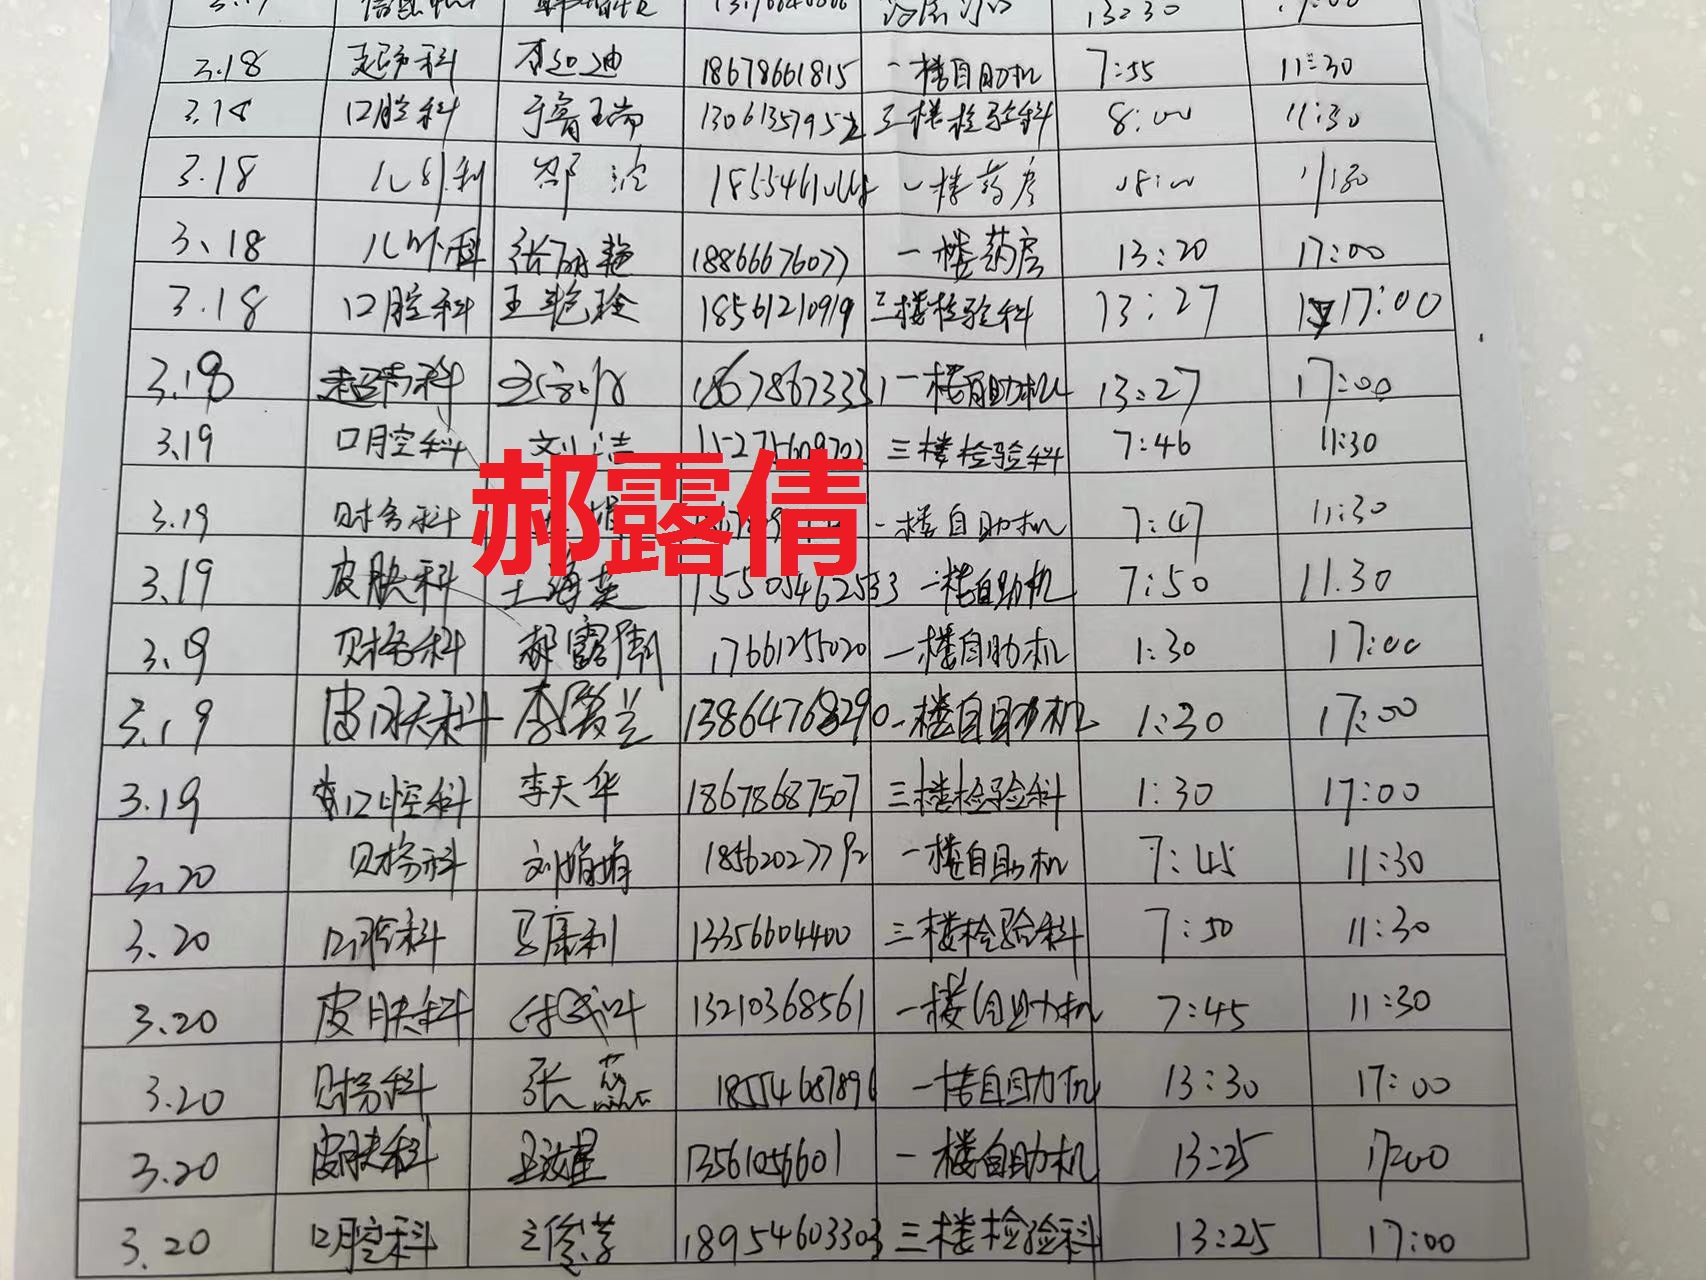 3.18 超声科 李迎迪 18678661815 一楼自助机 7:55 11:30
3.18 口腔科 于育瑞 三楼检验科 8:00 11:30
3.18 儿外科 邵 一楼药房 08:00 11:30
3.18 儿外科 张丽艳 18866676077 一楼药房 13:20 17:00
3.18 口腔科 王艳玲 18561210919 三楼检验科 13:27 17:00
3.18 超声科 18678673331 一楼自助机 13:27 17:00
3.19 口腔科 刘洁 三楼检验科 7:46 11:30
3.19 财务科 一楼自助机 7:47 11:30
郝露倩
3.19 皮肤科 王海英 15505462533 一楼自助机 7:50 11.30
3.19 财务科 郝露倩 17661255020 一楼自助机 1:30 17:00
3.19 皮肤科 李兰 13864768290 一楼自助机 1:30 17:00
3.19 口腔科 李天华 18678687507 三楼检验科 1:30 17:00
3.20 财务科 刘娟娟 18562027792 一楼自助机 7:45 11:30
3.20 口腔科 马康利 13356604400 三楼检验科 7:50 11:30
3.20 皮肤科 13210368561 一楼自助机 7:45 11:30
3.20 财务科 张蕊 18554687896 一楼自助机 13:30 17:00
3.20 皮肤科 13561056601 一楼自助机 13:25 17:00
3.20 口腔科 18954603303 三楼检验科 13:25 17:00